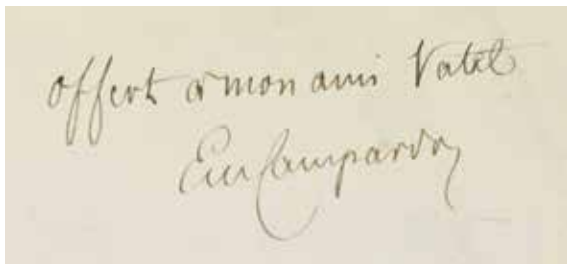 offert à mon ami Vatel
Em Campardon